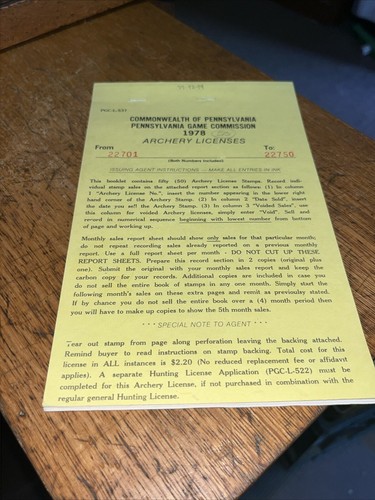 PGC-L-521
COMMONWEALTH OF PENNSYLVANIA
PENNSYLVANIA GAME COMMISSION
1978
ARCHERY LICENSES
From To:
22701 22750
(Both Numbers Inclusive)
ISSUING AGENT INSTRUCTIONS — MAKE ALL ENTRIES IN INK
This booklet contains fifty (50) Archery License Stamps. Record indi-
vidual stamp sales on the attached report section as follows: (1) In column
1 "Archery License No.", insert the number appearing in the lower right
hand corner of the Archery Stamp. (2) In column 2 "Date Sold", insert
the date you sell the Archery Stamp. (3) In column 3 "Voided Sales", use
this column for voided Archery licenses, simply enter "Void". Sell and
record in numerical sequence beginning with lowest number from bottom
of page and working up.
Monthly sales report sheet should show only sales for that particular month;
do not repeat recording sales already reported on a previous monthly
report. Use a full report sheet per month - DO NOT CUT UP THESE
REPORT SHEETS. Prepare this record section in 2 copies (original plus
one). Submit the original with your monthly sales report and keep the
carbon copy for your records. Additional copies are included in case you
do not sell the entire book of stamps in any one month. Simply start the
following month's sales on these extra pages and remit as previously stated.
If by chance you do not sell the entire book over a (4) month period then
you will have to make up copies to show the 5th month sales.
* * * SPECIAL NOTE TO AGENT * * *
Tear out stamp from page along perforation leaving the backing attached.
Remind buyer to read instructions on stamp backing. Total cost for this
license in ALL instances is $2.20 (No reduced replacement fee or affidavit
applies). A separate Hunting License Application (PGC-L-522) must be
completed for this Archery License, if not purchased in combination with the
regular general Hunting License.